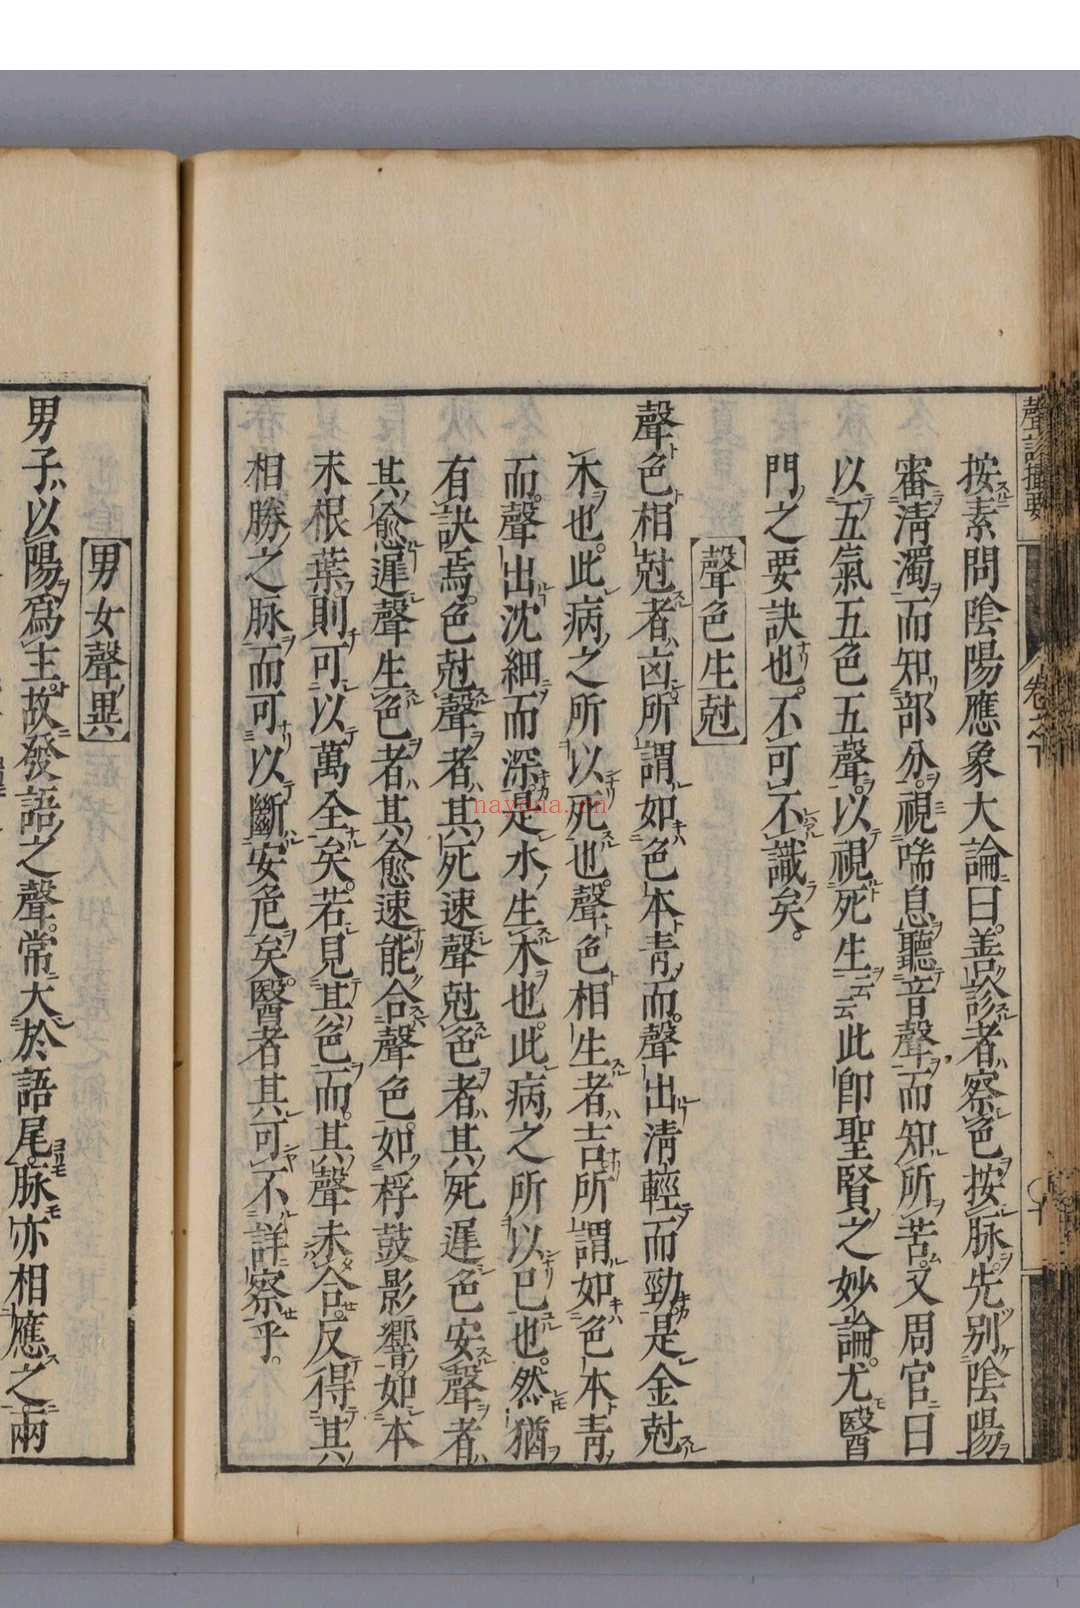 聲診撮要
卷之下
按素問陰陽應象大論曰。善診者察色按脉。先別陰陽
審清濁而知部分。視喘息聽音聲而知所苦。又周官曰
以五氣五色五聲。以視死生云云此卽聖賢之妙論。尤醫
門之要訣也。不可不識矣。
聲色生尅
聲色相尅者凶。所謂如色本青而。聲出清輕而勁。是金尅
木也。此病之所以死也。聲色相生者吉。所謂如色本青
而。聲出沈細而深。是水生木也。此病之所以已也。然猶
有訣焉。色尅聲者其死速。聲尅色者其死遲。色安聲者
其愈遲。聲生色者其愈速。能合聲色。如桴鼓影響。如本
末根葉。則可以萬全矣。若見其色而。其聲未合。反得其
相勝之脉。而可以斷安危矣。醫者其可不詳察乎。
男女聲異
男子以陽爲主。故發語之聲。常大於語尾。脉亦相應之兩
nayona.cn